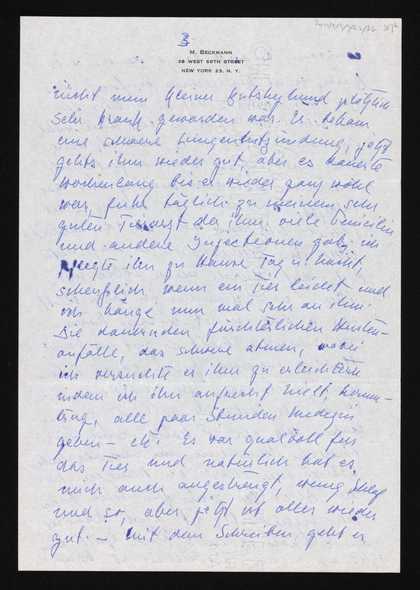 3
M. BECKMANN
38 WEST 69TH STREET
NEW YORK 23, N. Y.
nicht mein kleiner plötzlich
sehr krank geworden wär. Er bekam
eine schwere Lungenentzündung, jetzt
gehts ihm wieder gut, aber es dauerte
wochenlang bis er wieder ganz wohl
war, fuhr täglich zu meinem sehr
guten Tierarzt der ihm viele Penicilin
und andere Injectionen gab, ich
pflegte ihn zu Hause Tag u. Nacht,
scheusslich, wenn ein Tier leidet und
ich hänge nun mal sehr an ihm.
Die dauernden fürchterlichen Husten-
anfälle, das schwere atmen, wobei
ich versuchte es ihm zu erleichtern
indem ich ihn aufrecht hielt,
alle paar Stunden Medizin
geben – etc. Es war qualvoll für
das Tier und natürlich hat es
mich auch angestrengt, wenig Schlaf
und so, aber jetzt ist alles wieder
gut. – Mit dem Schreiben geht es